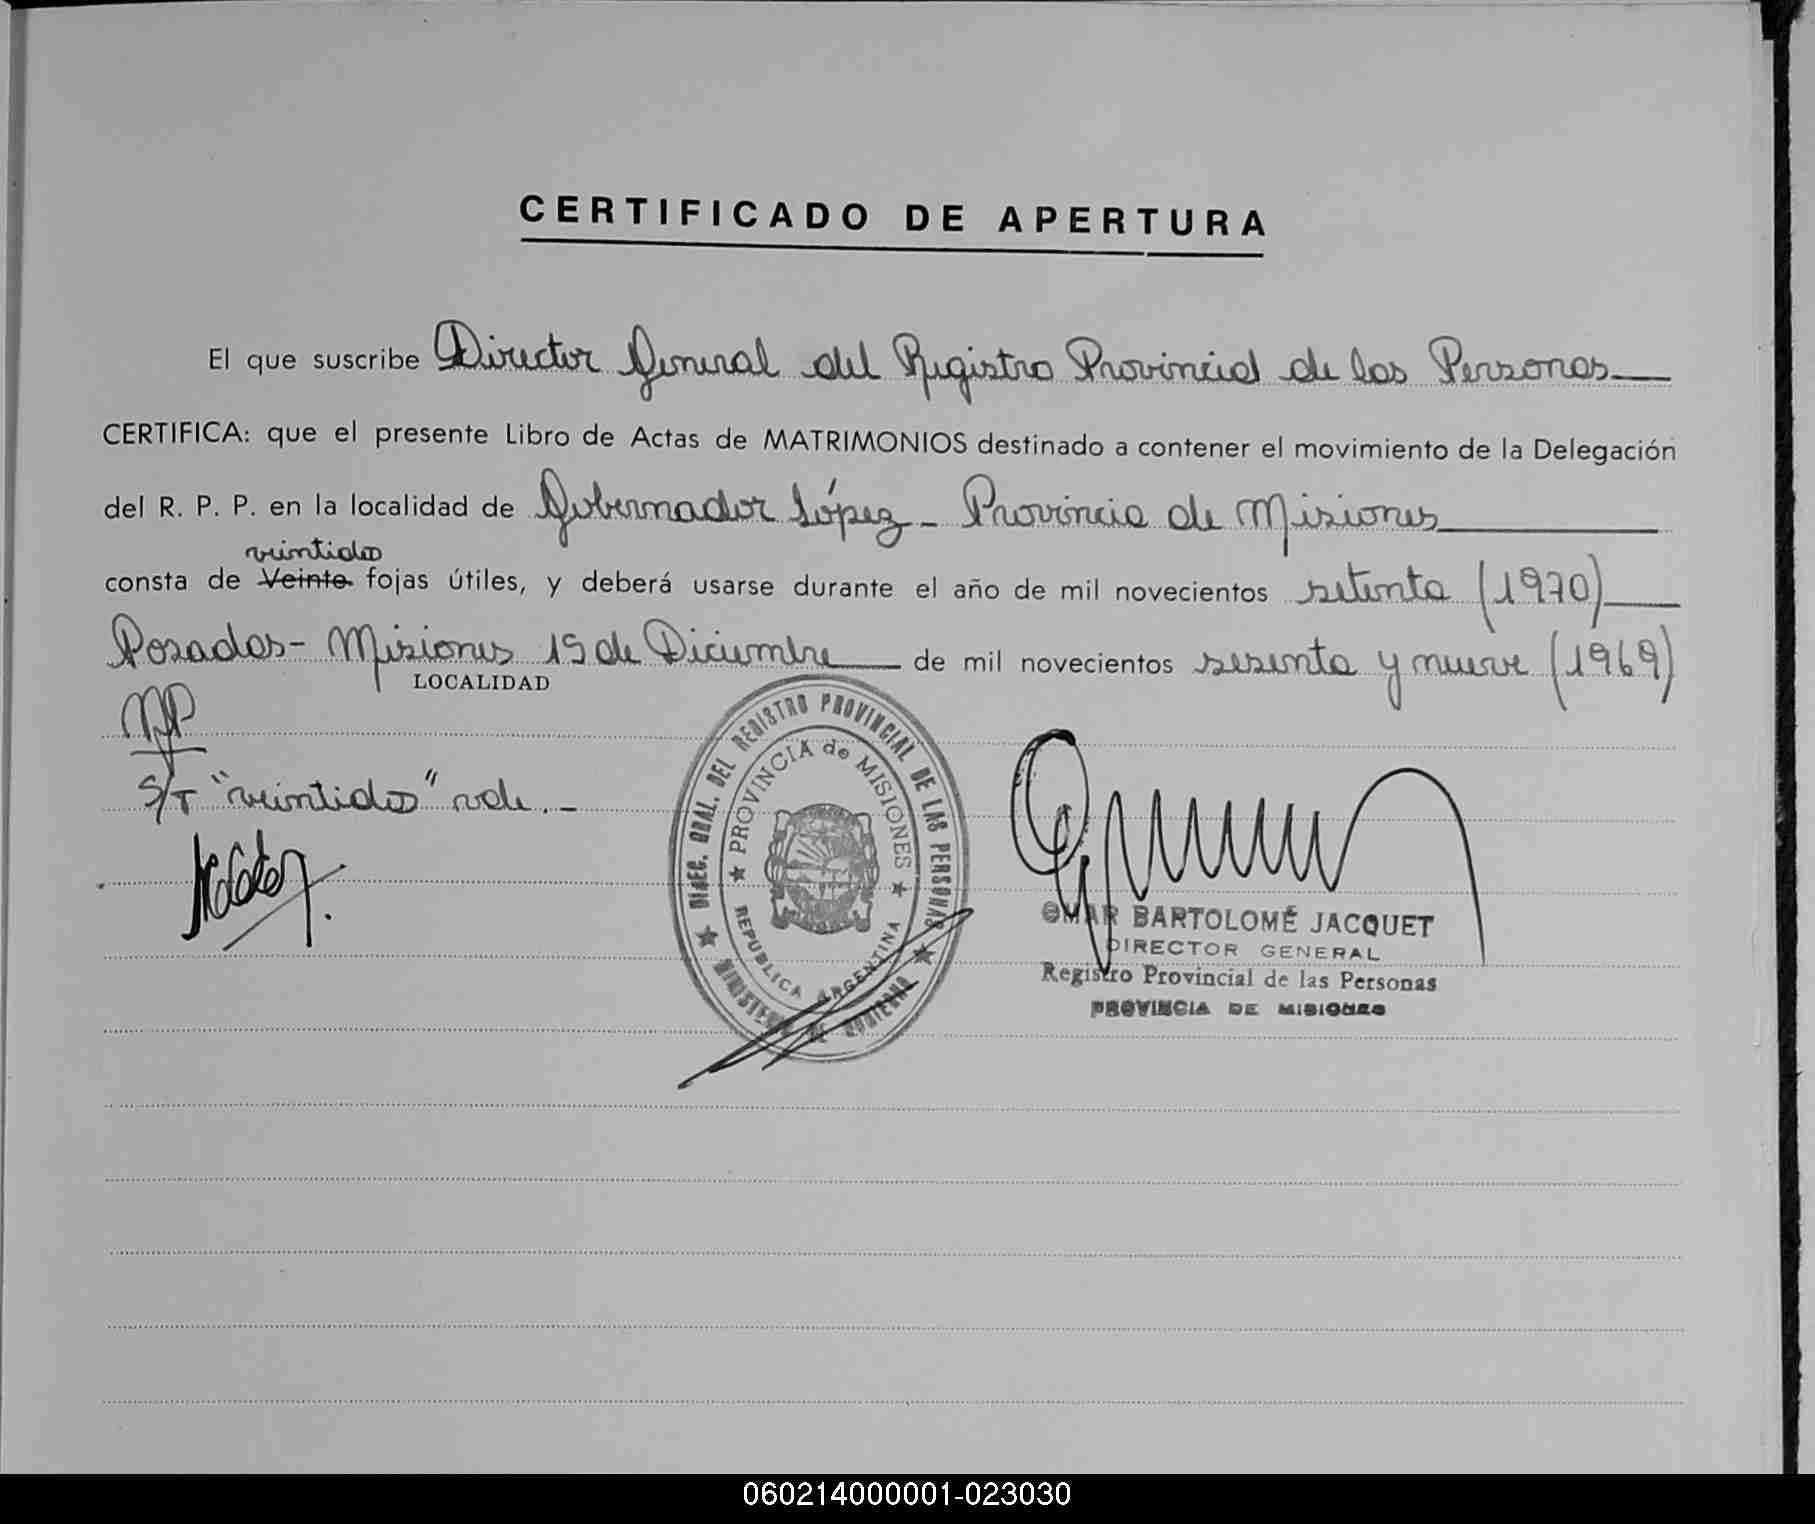 CERTIFICADO DE APERTURA
El que suscribe Director General del Registro Provincial de las Personas
CERTIFICA: que el presente Libro de Actas de MATRIMONIOS destinado a contener el movimiento de la Delegación
del R. P. P. en la localidad de Gobernador López - Provincia de Misiones
veintidos
consta de Veinte fojas útiles, y deberá usarse durante el año de mil novecientos setenta (1970)
Posadas - Misiones 19 de Diciembre de mil novecientos sesenta y nueve (1969)
LOCALIDAD
S/T "veintidos" vale. -
DIREC. GRAL. DEL REGISTRO PROVINCIAL DE LAS PERSONAS
PROVINCIA de MISIONES
REPUBLICA ARGENTINA
MINISTERIO DE GOBIERNO
OMAR BARTOLOMÉ JACQUET
DIRECTOR GENERAL
Registro Provincial de las Personas
PROVINCIA DE MISIONES
060214000001-023030